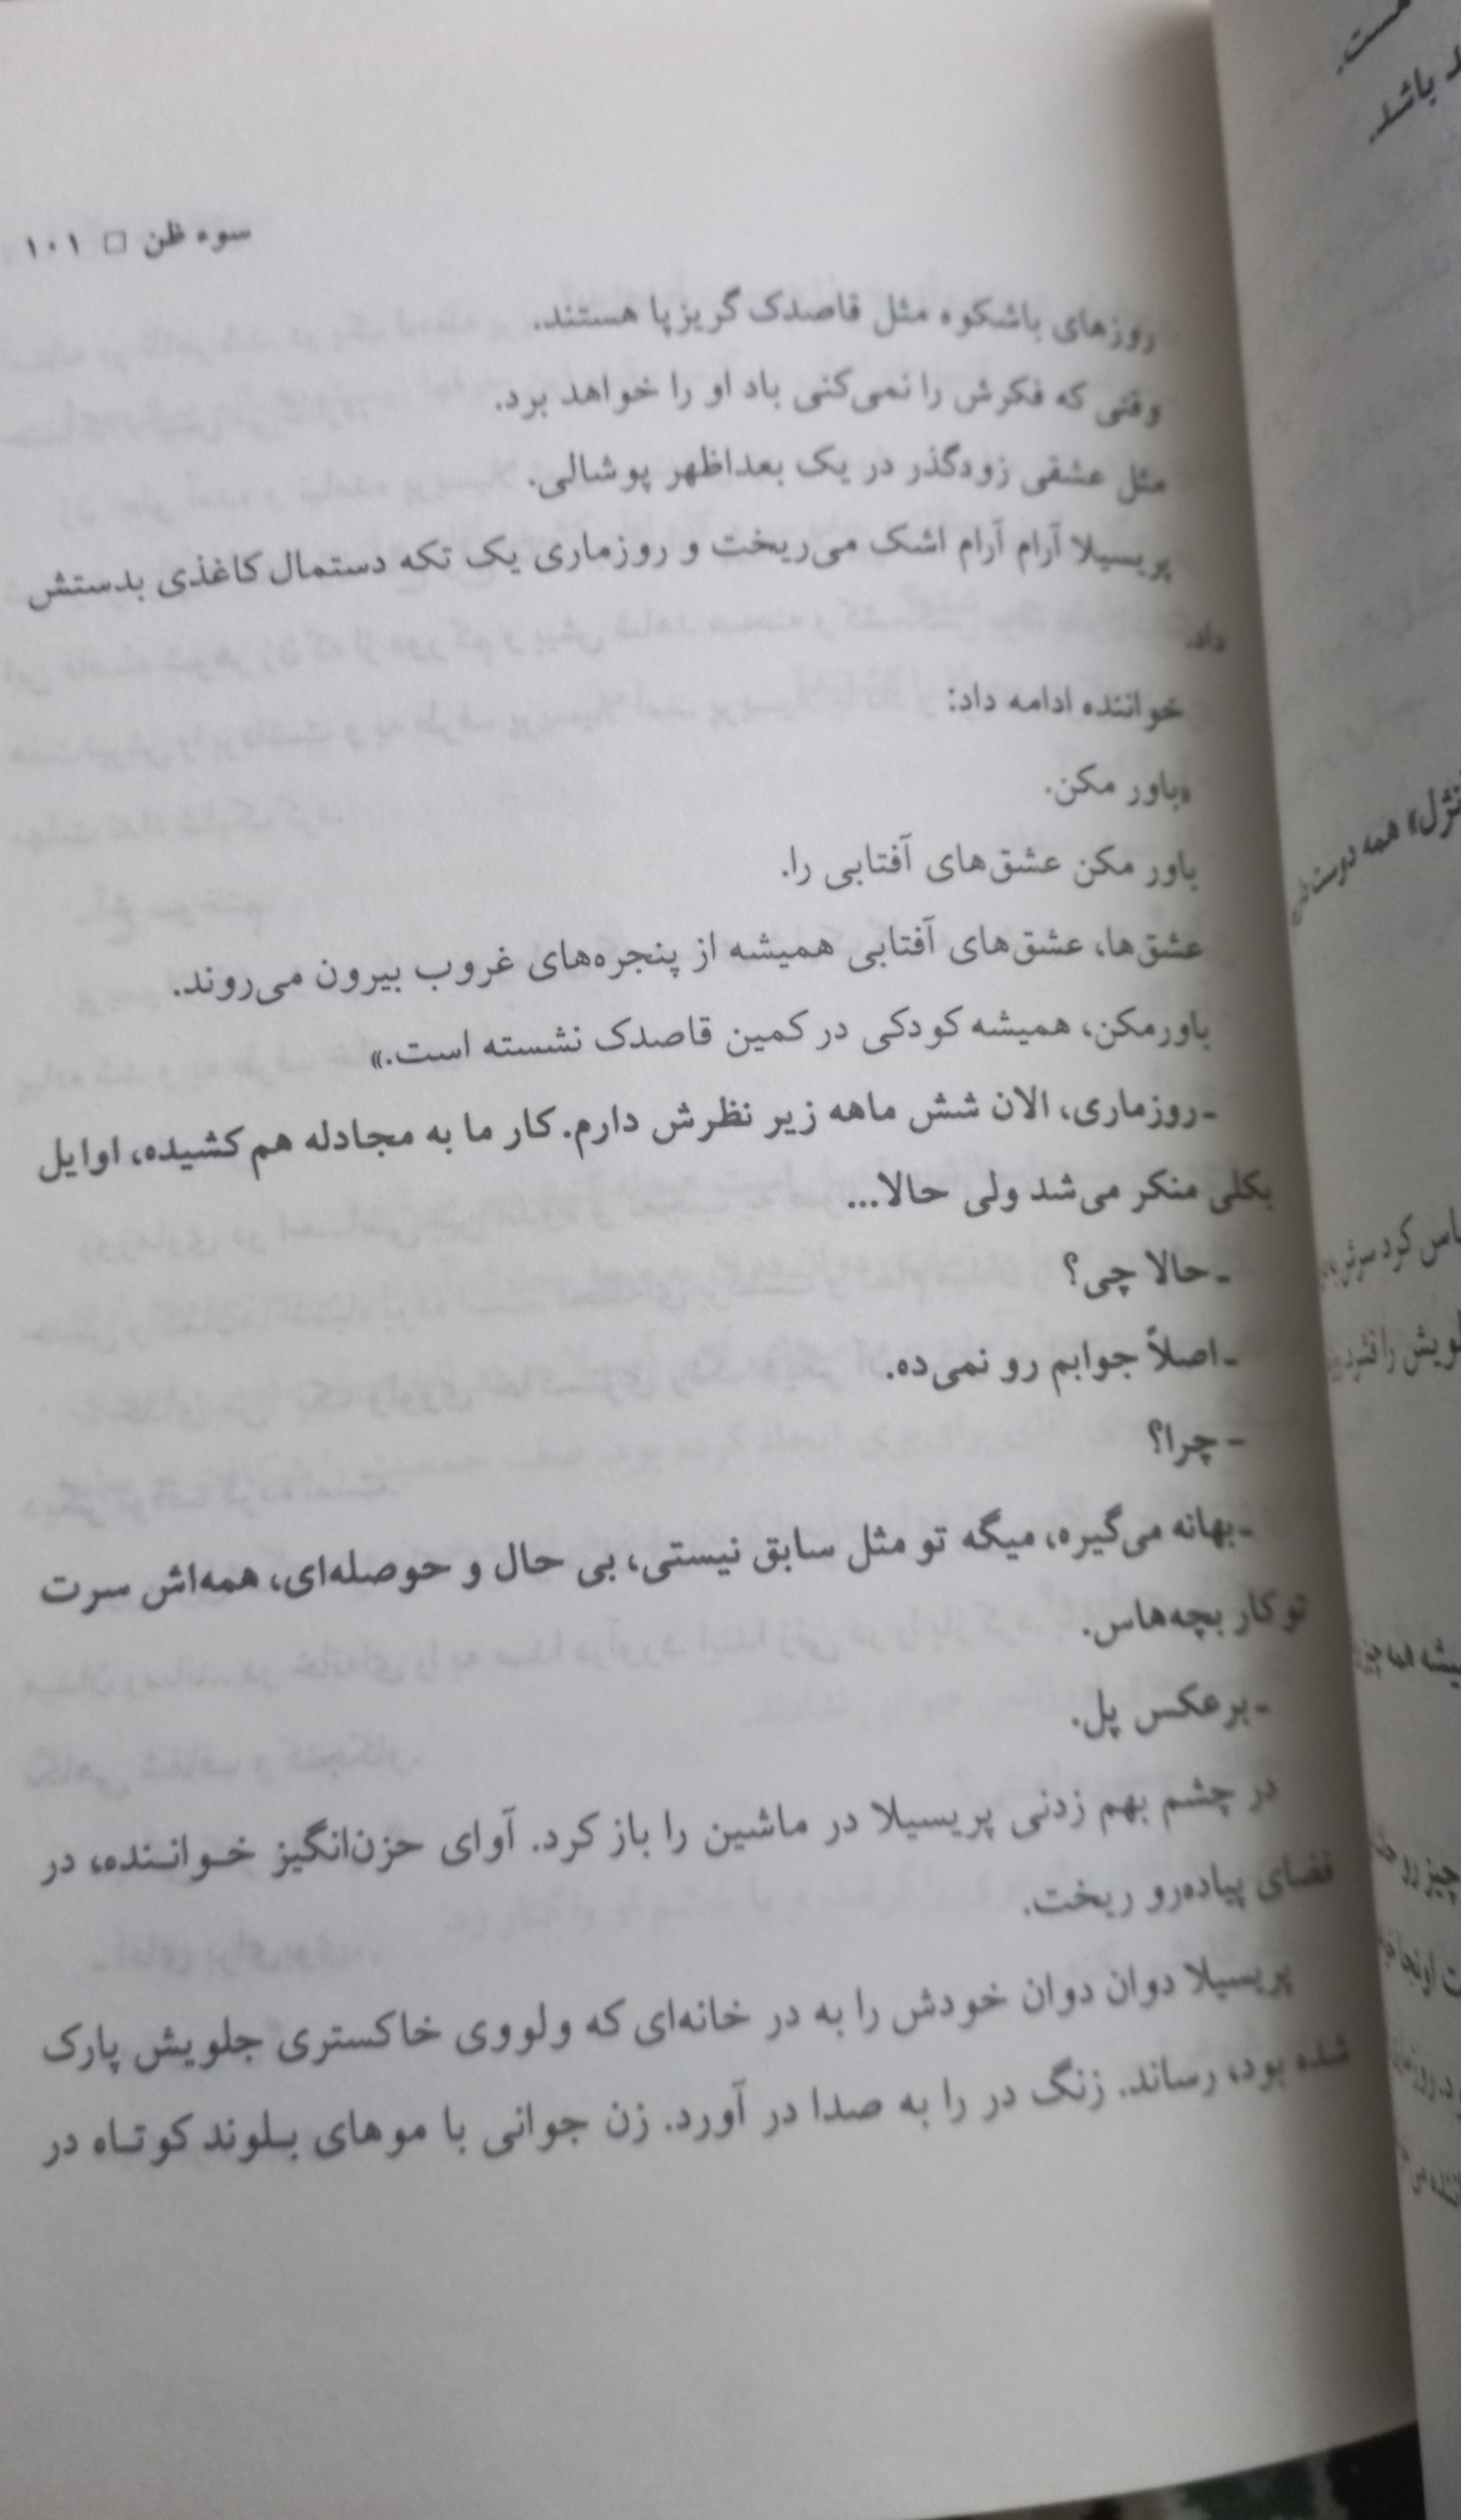 سوء ظن □ ۱۰۱
روزهای باشکوه مثل قاصدک گریزپا هستند.
وقتی که فکرش را نمی‌کنی باد او را خواهد برد.
مثل عشقی زودگذر در یک بعداظهر پوشالی.
پریسیلا آرام آرام اشک می‌ریخت و روزماری یک تکه دستمال کاغذی بدستش
داد.
خواننده ادامه داد:
«باور مکن.
باور مکن عشق‌های آفتابی را.
عشق‌ها، عشق‌های آفتابی همیشه از پنجره‌های غروب بیرون می‌روند.
باورمکن، همیشه کودکی در کمین قاصدک نشسته است.»
ـ روزماری، الان شش ماهه زیر نظرش دارم. کار ما به مجادله هم کشیده، اوایل
بکلی منکر می‌شد ولی حالا...
ـ حالا چی؟
ـ اصلاً جوابم رو نمی‌ده.
ـ چرا؟
ـ بهانه می‌گیره، میگه تو مثل سابق نیستی، بی حال و حوصله‌ای، همه‌اش سرت
تو کار بچه‌هاس.
ـ برعکس پل.
در چشم بهم زدنی پریسیلا در ماشین را باز کرد. آوای حزن‌انگیز خواننده، در
فضای پیاده‌رو ریخت.
پریسیلا دوان دوان خودش را به در خانه‌ای که ولووی خاکستری جلویش پارک
شده بود، رساند. زنگ در را به صدا در آورد. زن جوانی با موهای بلوند کوتاه در
باشد.
همه دوست
کرد
را
همه
چیز رو